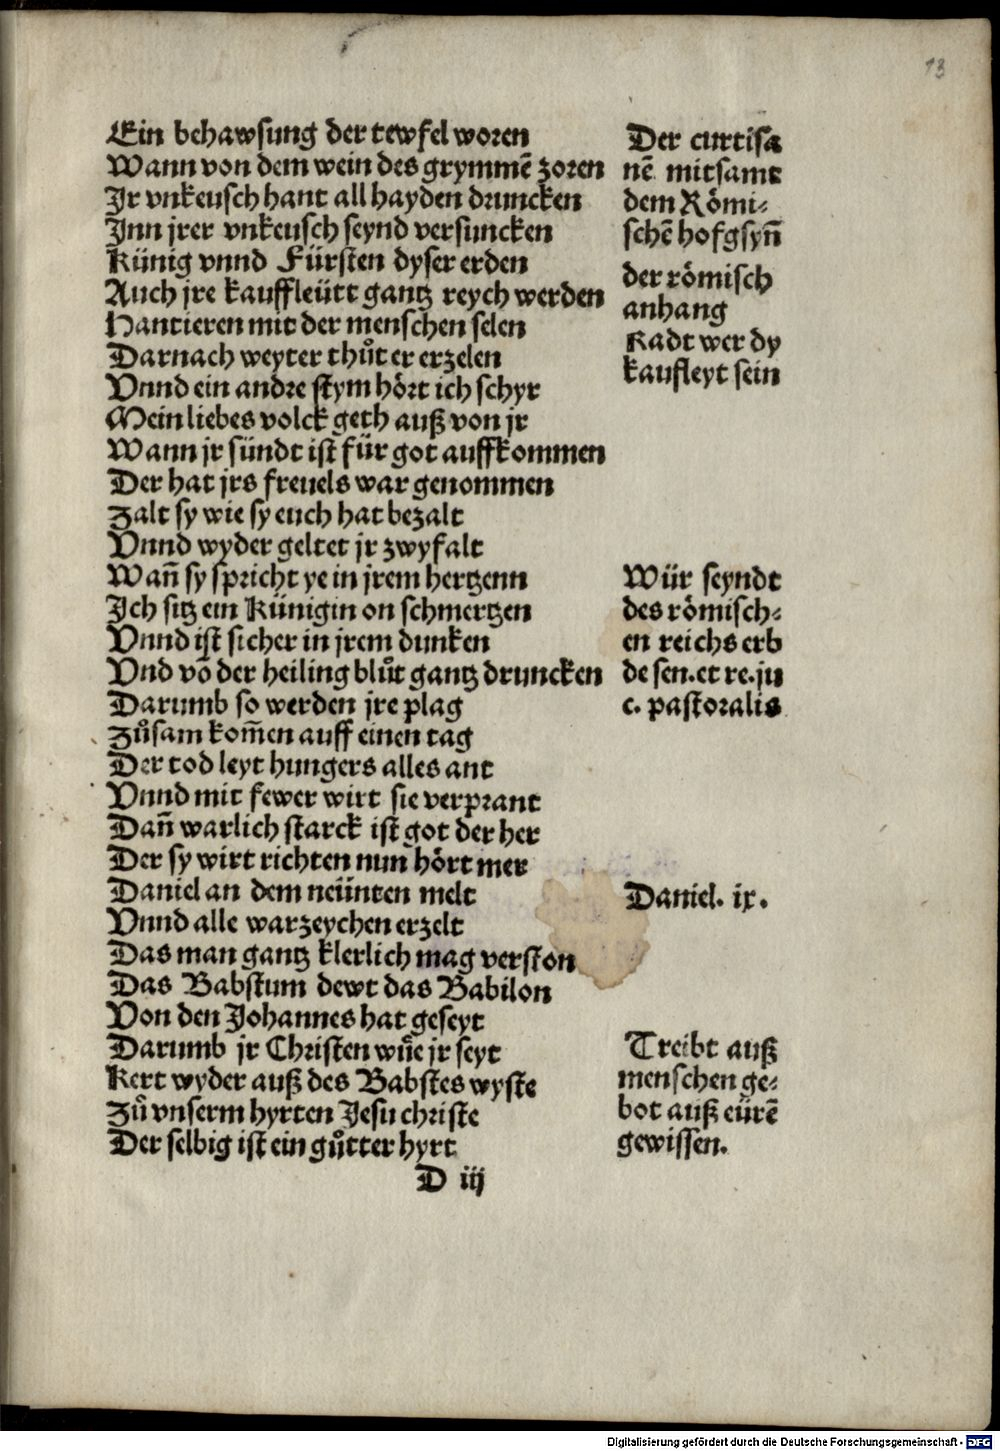 13
Ein behawsung der tewfel woren
Wann von dem wein des grymmẽ zoren
Ir vnkeusch hant all hayden druncken
Inn jrer vnkeusch seynd versuncken
Künig vnnd Fürsten dyser erden
Auch jre kauffleütt gantz reych werden
Hantieren mit der menschen selen
Darnach weyter thůt er erzelen
Vnnd ein andre stym hört ich schyr
Mein liebes volck geth auß von jr
Wann jr sündt ist für got auffkommen
Der hat jrs freuels war genommen
Zalt sy wie sy euch hat bezalt
Vnnd wyder geltet jr zwyfalt
Wañ sy spricht ye in jrem hertzenn
Ich sitz ein Künigin on schmertzen
Vnnd ist sicher in jrem dunken
Vnd võ der heiling blůt gantz druncken
Darumb so werden jre plag
Zůsam kom̃en auff einen tag
Der tod leyt hungers alles ant
Vnnd mit fewer wirt sie verprant
Dañ warlich starck ist got der her
Der sy wirt richten nun hört mer
Daniel an dem neünten melt
Vnnd alle warzeychen erzelt
Das man gantz klerlich mag verston
Das Babstum dewt das Babilon
Von den Johannes hat geseyt
Darumb jr Christen wůe jr seyt
Kert wyder auß des Babstes wyste
Zů vnserm hyrten Jesu christe
Der selbig ist ein gůtter hyrt
D iij
Der curtisa
nẽ mitsamt
dem Römi⸗
schẽ hofgsyñ
der römisch
anhang
Radt wer dy
kaufleyt sein
Wür seyndt
des römisch⸗
en reichs erb
de sen.et re.ju
c. pastoralis
Daniel. ix.
Treibt auß
menschen ge⸗
bot auß eürẽ
gewissen.
Digitalisierung gefördert durch die Deutsche Forschungsgemeinschaft - DFG